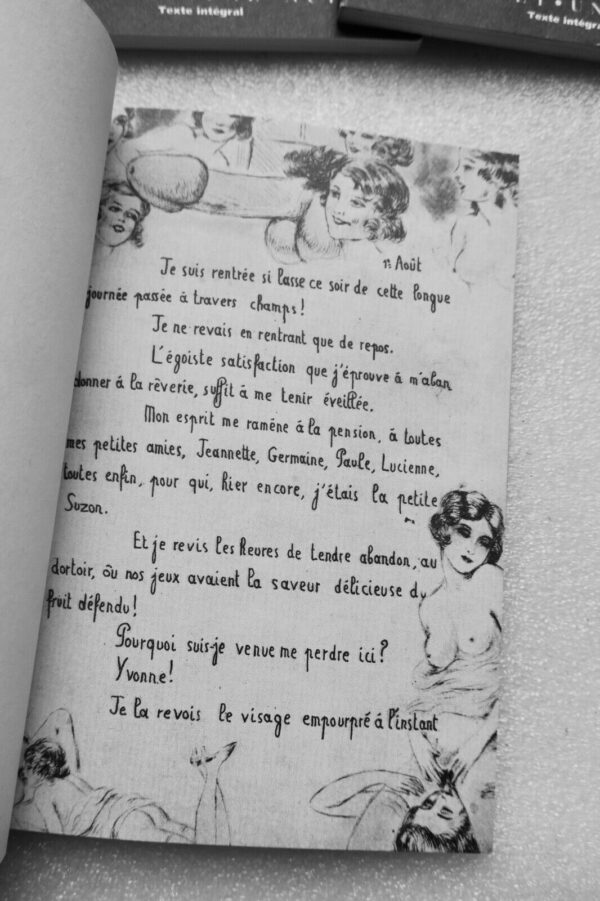 Texte intégral
Texte intégral
1er Août
Je suis rentrée si lasse ce soir de cette longue
journée passée à travers champs!
Je ne revais en rentrant que de repos.
L'égoiste satisfaction que j'éprouve à m'aban
donner à la rèverie, suffit à me tenir éveillée.
Mon esprit me ramène à la pension, à toutes
mes petites amies, Jeannette, Germaine, Paule, Lucienne,
toutes enfin, pour qui, hier encore, j'étais la petite
Suzon.
Et je revis les heures de tendre abandon, au
dortoir, où nos jeux avaient la saveur délicieuse du
fruit défendu!
Pourquoi suis-je venue me perdre ici?
Yvonne!
Je la revois le visage empourpré à l'instant